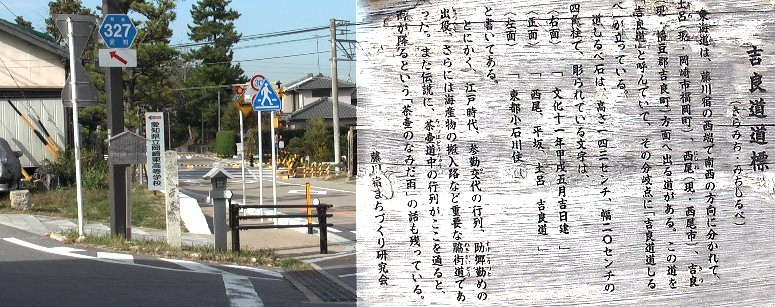 県道
327
愛知
愛知県立岡崎東高等学校
吉良道道標
(きらみち・みちしるべ)
東海道は、藤川宿の西端で南西の方向に分かれて、
土呂(現・岡崎市福岡町)、西尾(現・西尾市)、吉良
(現・幡豆郡吉良町)方面へ出る道がある。この道を
「吉良道」と呼んでいて、その分岐点に「吉良道道しる
べ」が立っている。
道しるべ石は、高さ一四三センチ、幅二〇センチの
四角柱で、彫られている文字は
(右面) 「 文化十一年甲戌五月吉日建 」
(正面) 「 西尾、平坂、土呂、吉良道 」
(左面) 「 東都小石川住
と書いてある。
とにかく、江戸時代、参勤交代の行列、助郷勤めの
出役、さらには海産物の搬入路など重要な脇街道であ
った。また伝説に、茶壷道中の行列がここを通ると、
雨が降るという「茶壷のなみだ雨」の話も残っている。
藤川宿まちづくり研究会